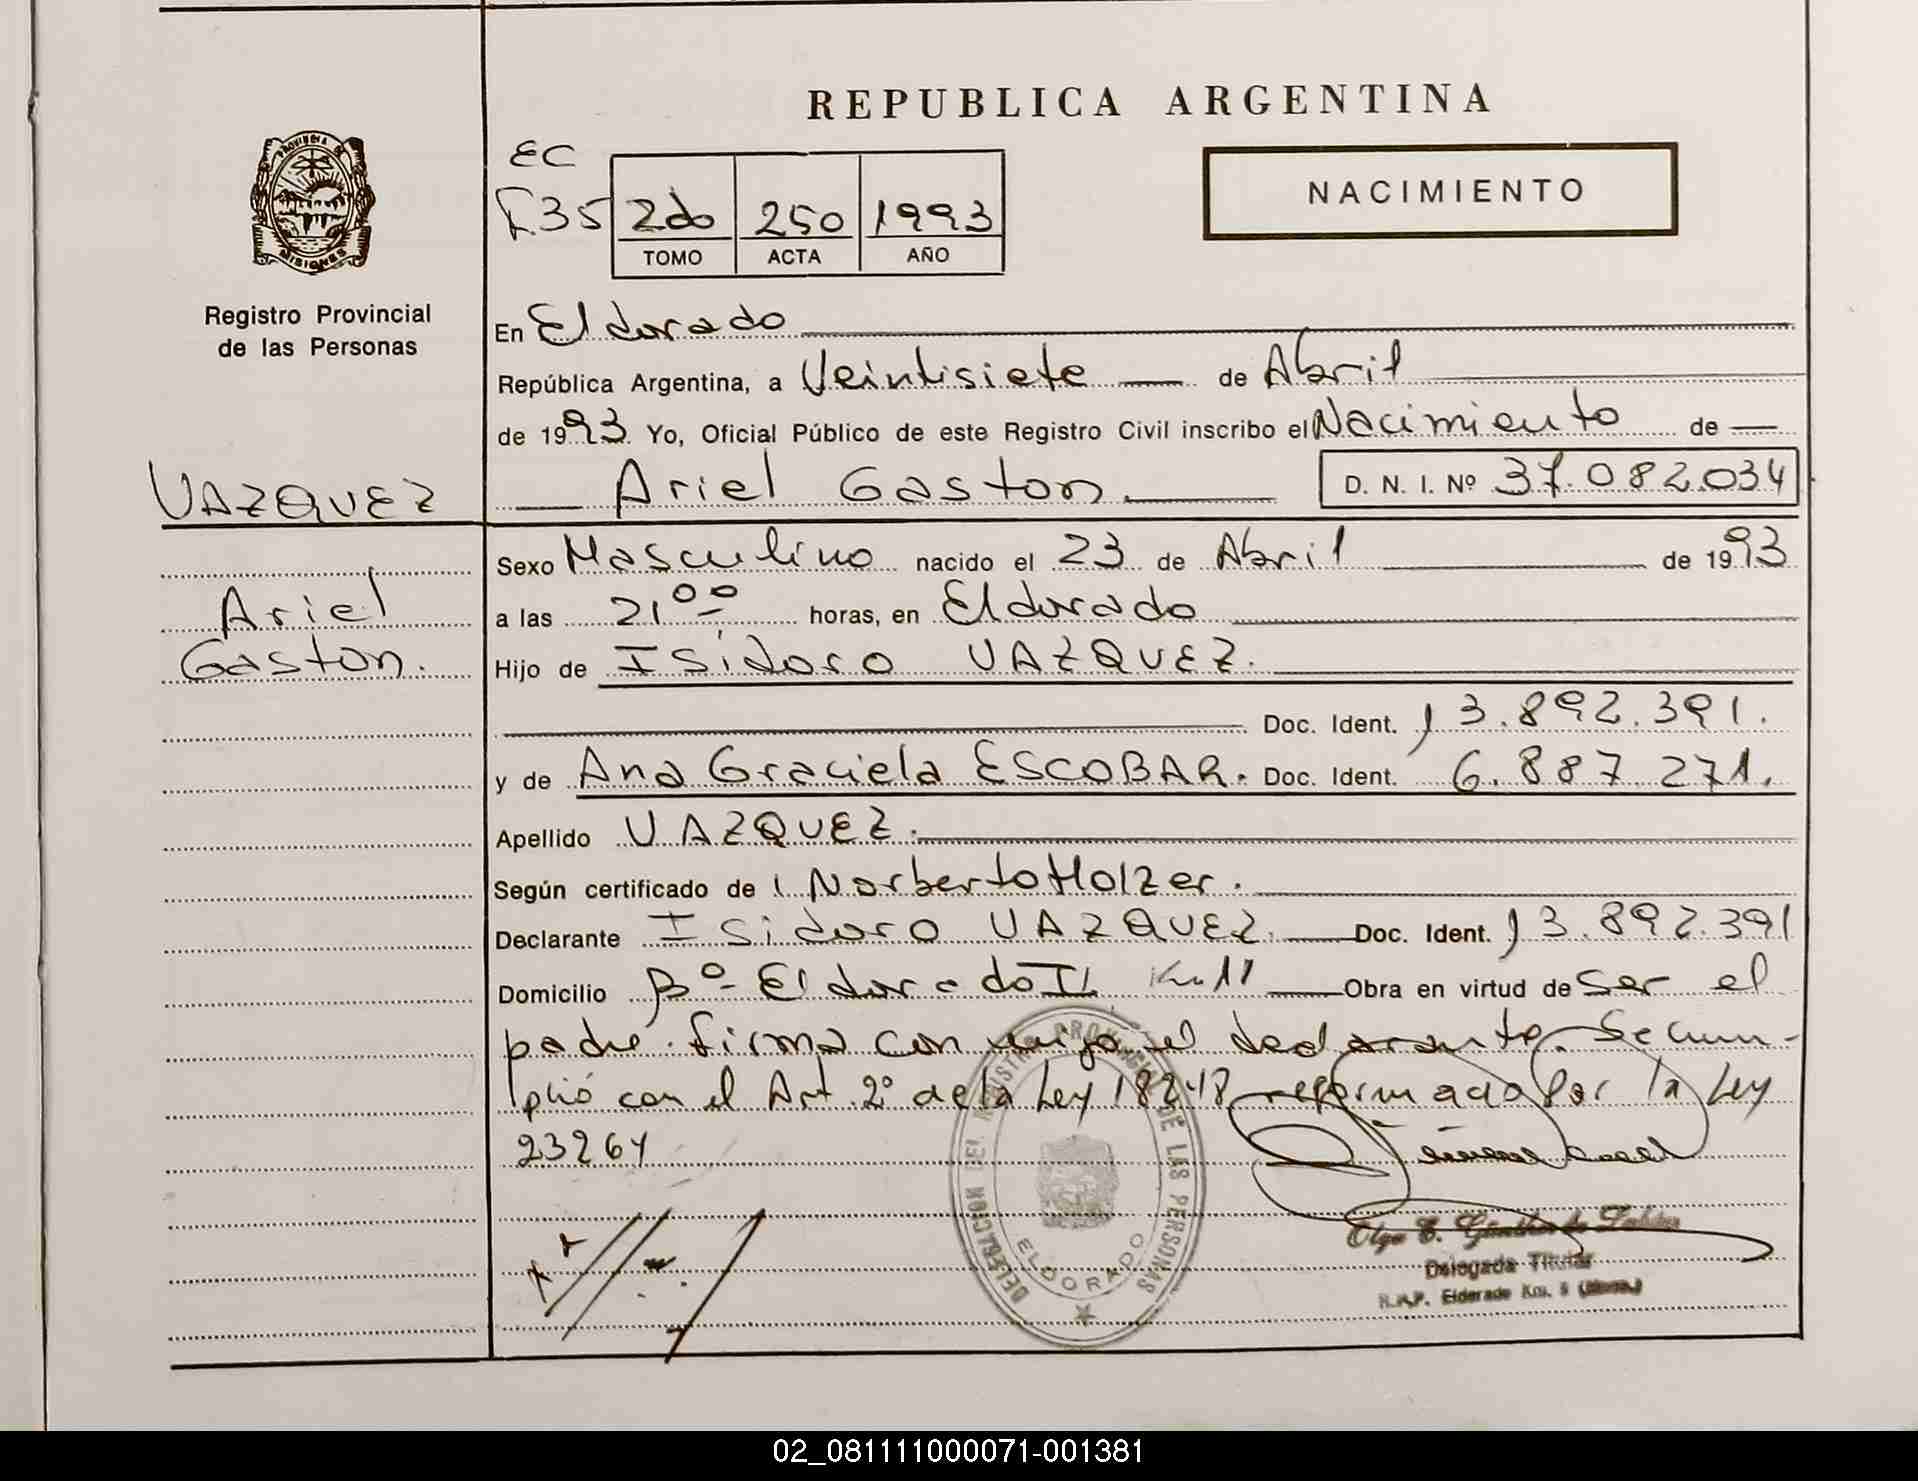 REPUBLICA ARGENTINA
PROVINCIA DE
MISIONES
Registro Provincial
de las Personas
EC
F.35
2do 250 1993
TOMO ACTA AÑO
NACIMIENTO
En Eldorado
República Argentina, a Veintisiete de Abril
de 1993 Yo, Oficial Público de este Registro Civil inscribo el Nacimiento de
VAZQUEZ
Ariel Gaston. D. N. I. Nº 37.082.034
Sexo Masculino nacido el 23 de Abril de 1993
Ariel
a las 21 00 horas, en Eldorado
Gaston.
Hijo de Isidoro VAZQUEZ.
Doc. Ident. 13.892.391.
y de Ana Graciela ESCOBAR. Doc. Ident. 6.887 271.
Apellido VAZQUEZ.
Según certificado de Norberto Holzer.
Declarante Isidoro VAZQUEZ. Doc. Ident. 13.892.391
Domicilio Bº Eldorado II Km 11 Obra en virtud de Ser el
padre. firma con migo el declarante. Se cum-
plió con el Art. 2º de la Ley 18248 reformada por la Ley
23264
DELEGACION DEL REGISTRO PROVINCIAL DE LAS PERSONAS
ELDORADO
Olga E.
Delegada Titular
R.P.P. Eldorado Km. 9 (Mnes.)
02_081111000071-001381